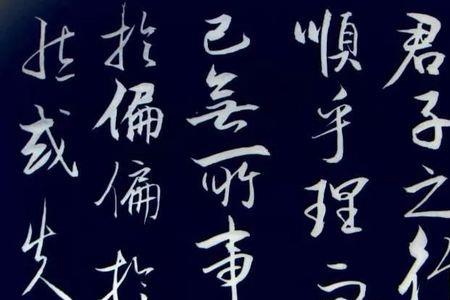 君子之行
順乎理而
已無所事
於偏偏於
然或失